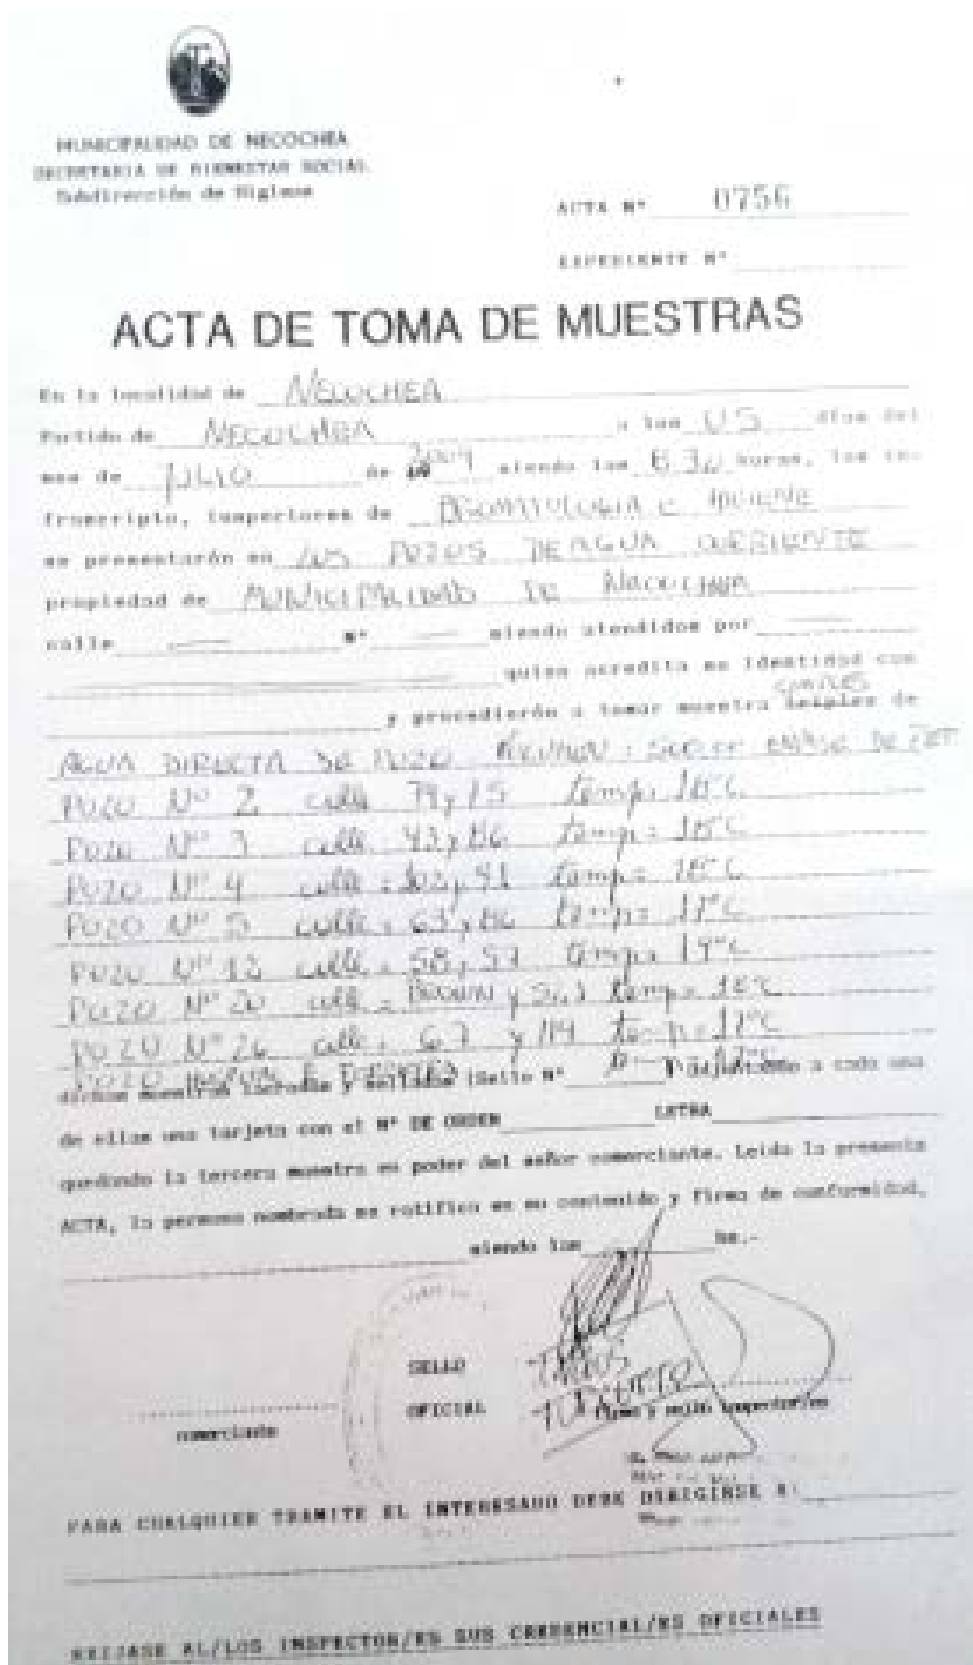 MUNICIPALIDAD DE NECOCHEA
SECRETARIA DE BIENESTAR SOCIAL
Subdirección de Higiene
ACTA Nº 0756
EXPEDIENTE Nº
ACTA DE TOMA DE MUESTRAS
En la localidad de NECOCHEA
Partido de NECOCHEA a los 05 días del
mes de JULIO de siendo las 8:30 horas, los in-
frascripto, inspectores de BROMATOLOGIA e HIGIENE
se presentarón en LOS POZOS DE AGUA CORRIENTE
propiedad de MUNICIPALIDAD DE NECOCHEA
calle Nº siendo atendidos por
quien acredita su identidad con
y procedierón a tomar muestra de
AGUA DIRECTA DE POZO ENVASE DE
POZO Nº 2 calle 79 y 15 temp: 18ºC
POZO Nº 3 calle: 43 y 86 temp = 18ºC
POZO Nº 4 calle = temp = 18ºC
POZO Nº 5 calle = 63 y 86 temp = 17ºC
POZO Nº 12 calle = 58 y 57 temp = 19ºC
POZO Nº 20 calle = BROWN y temp = 18ºC
POZO Nº 26 calle = 67 y 114 temp = 17ºC
dichas muestras lacradas y selladas (Sello Nº a cada una
de ellas una tarjeta con el Nº DE ORDEN LETRA
quedando la tercera muestra en poder del señor comerciante. Leída la presente
ACTA, la persona nombrada se ratifica en su contenido y firma de conformidad,
siendo las hs.-
SELLO
OFICIAL
comerciante
firma y sello inspector/es
PARA CUALQUIER TRAMITE EL INTERESADO DEBE DIRIGIRSE A:
EXIJASE AL/LOS INSPECTOR/ES SUS CREDENCIAL/ES OFICIALES